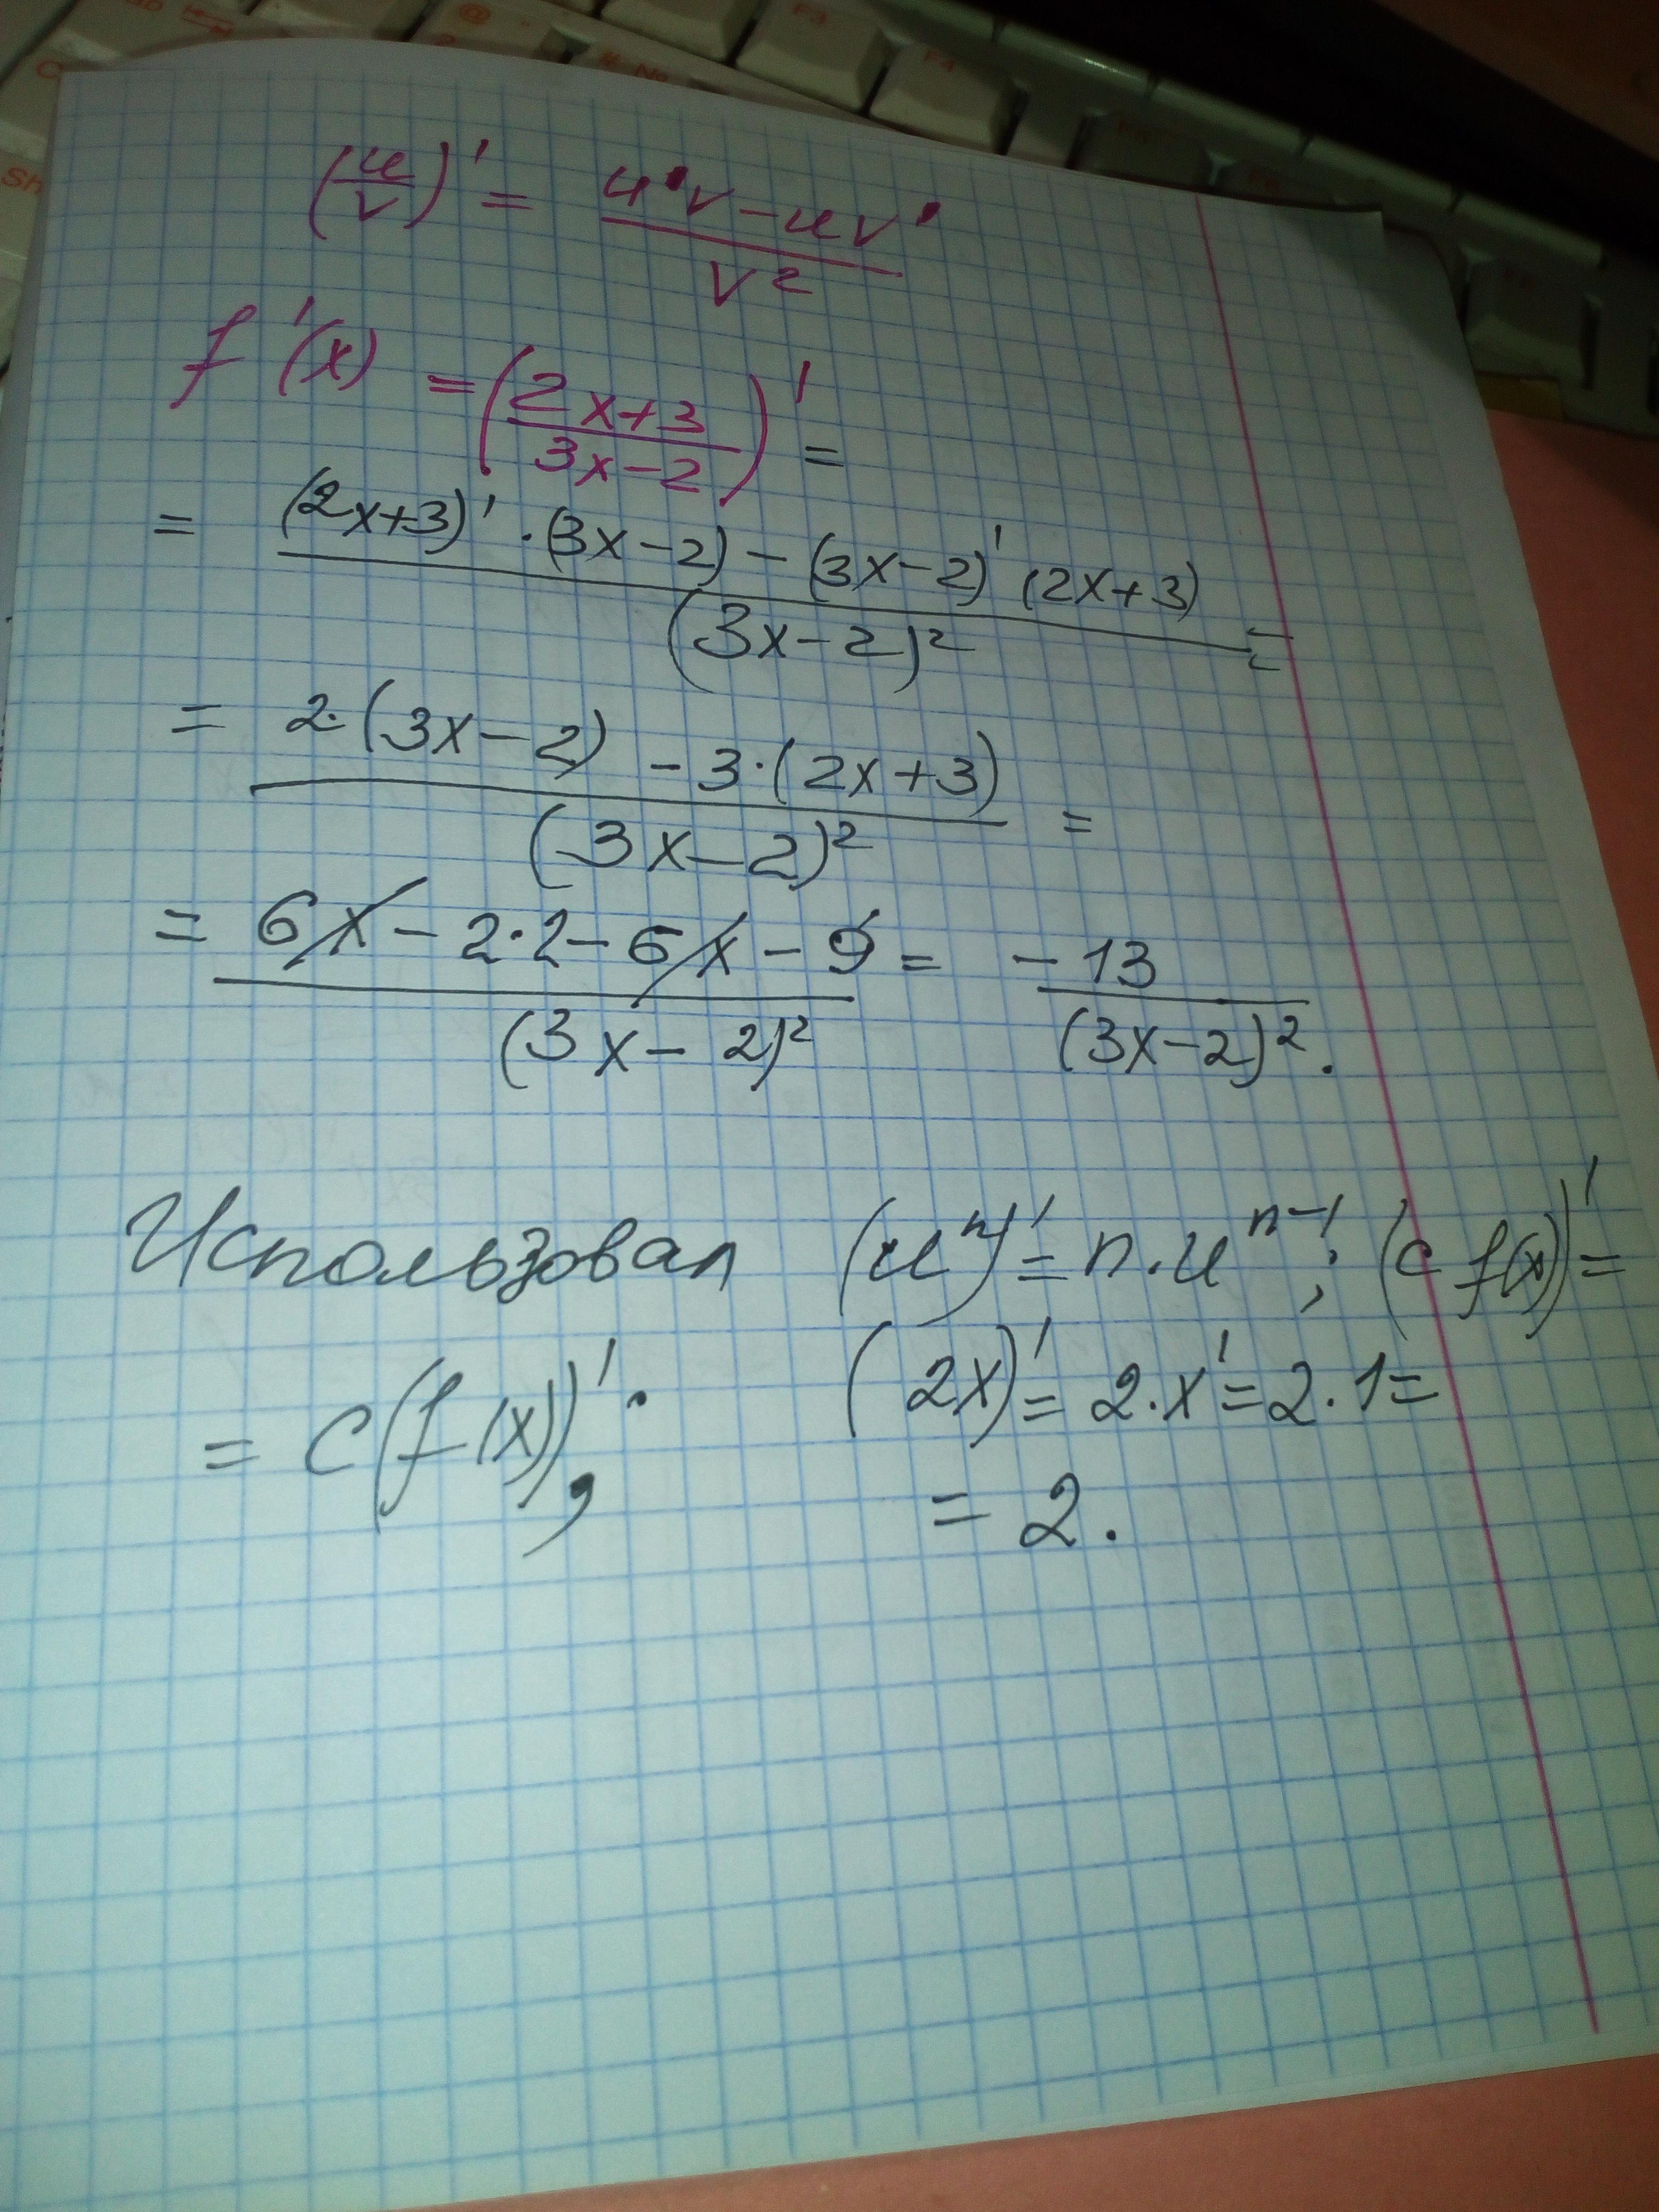 (u/v)' = (u'v - uv')/v²
f'(x) = ((2x+3)/(3x-2))' =
= ((2x+3)'·(3x-2) - (3x-2)'(2x+3))/(3x-2)² =
= (2·(3x-2) - 3·(2x+3))/(3x-2)² =
= (6x - 2·2 - 6x - 9)/(3x-2)² = -13/(3x-2)².
Использовал (uⁿ)' = n·uⁿ⁻¹; (c f(x))' =
= c(f(x))', (2x)' = 2·x' = 2·1 =
= 2.